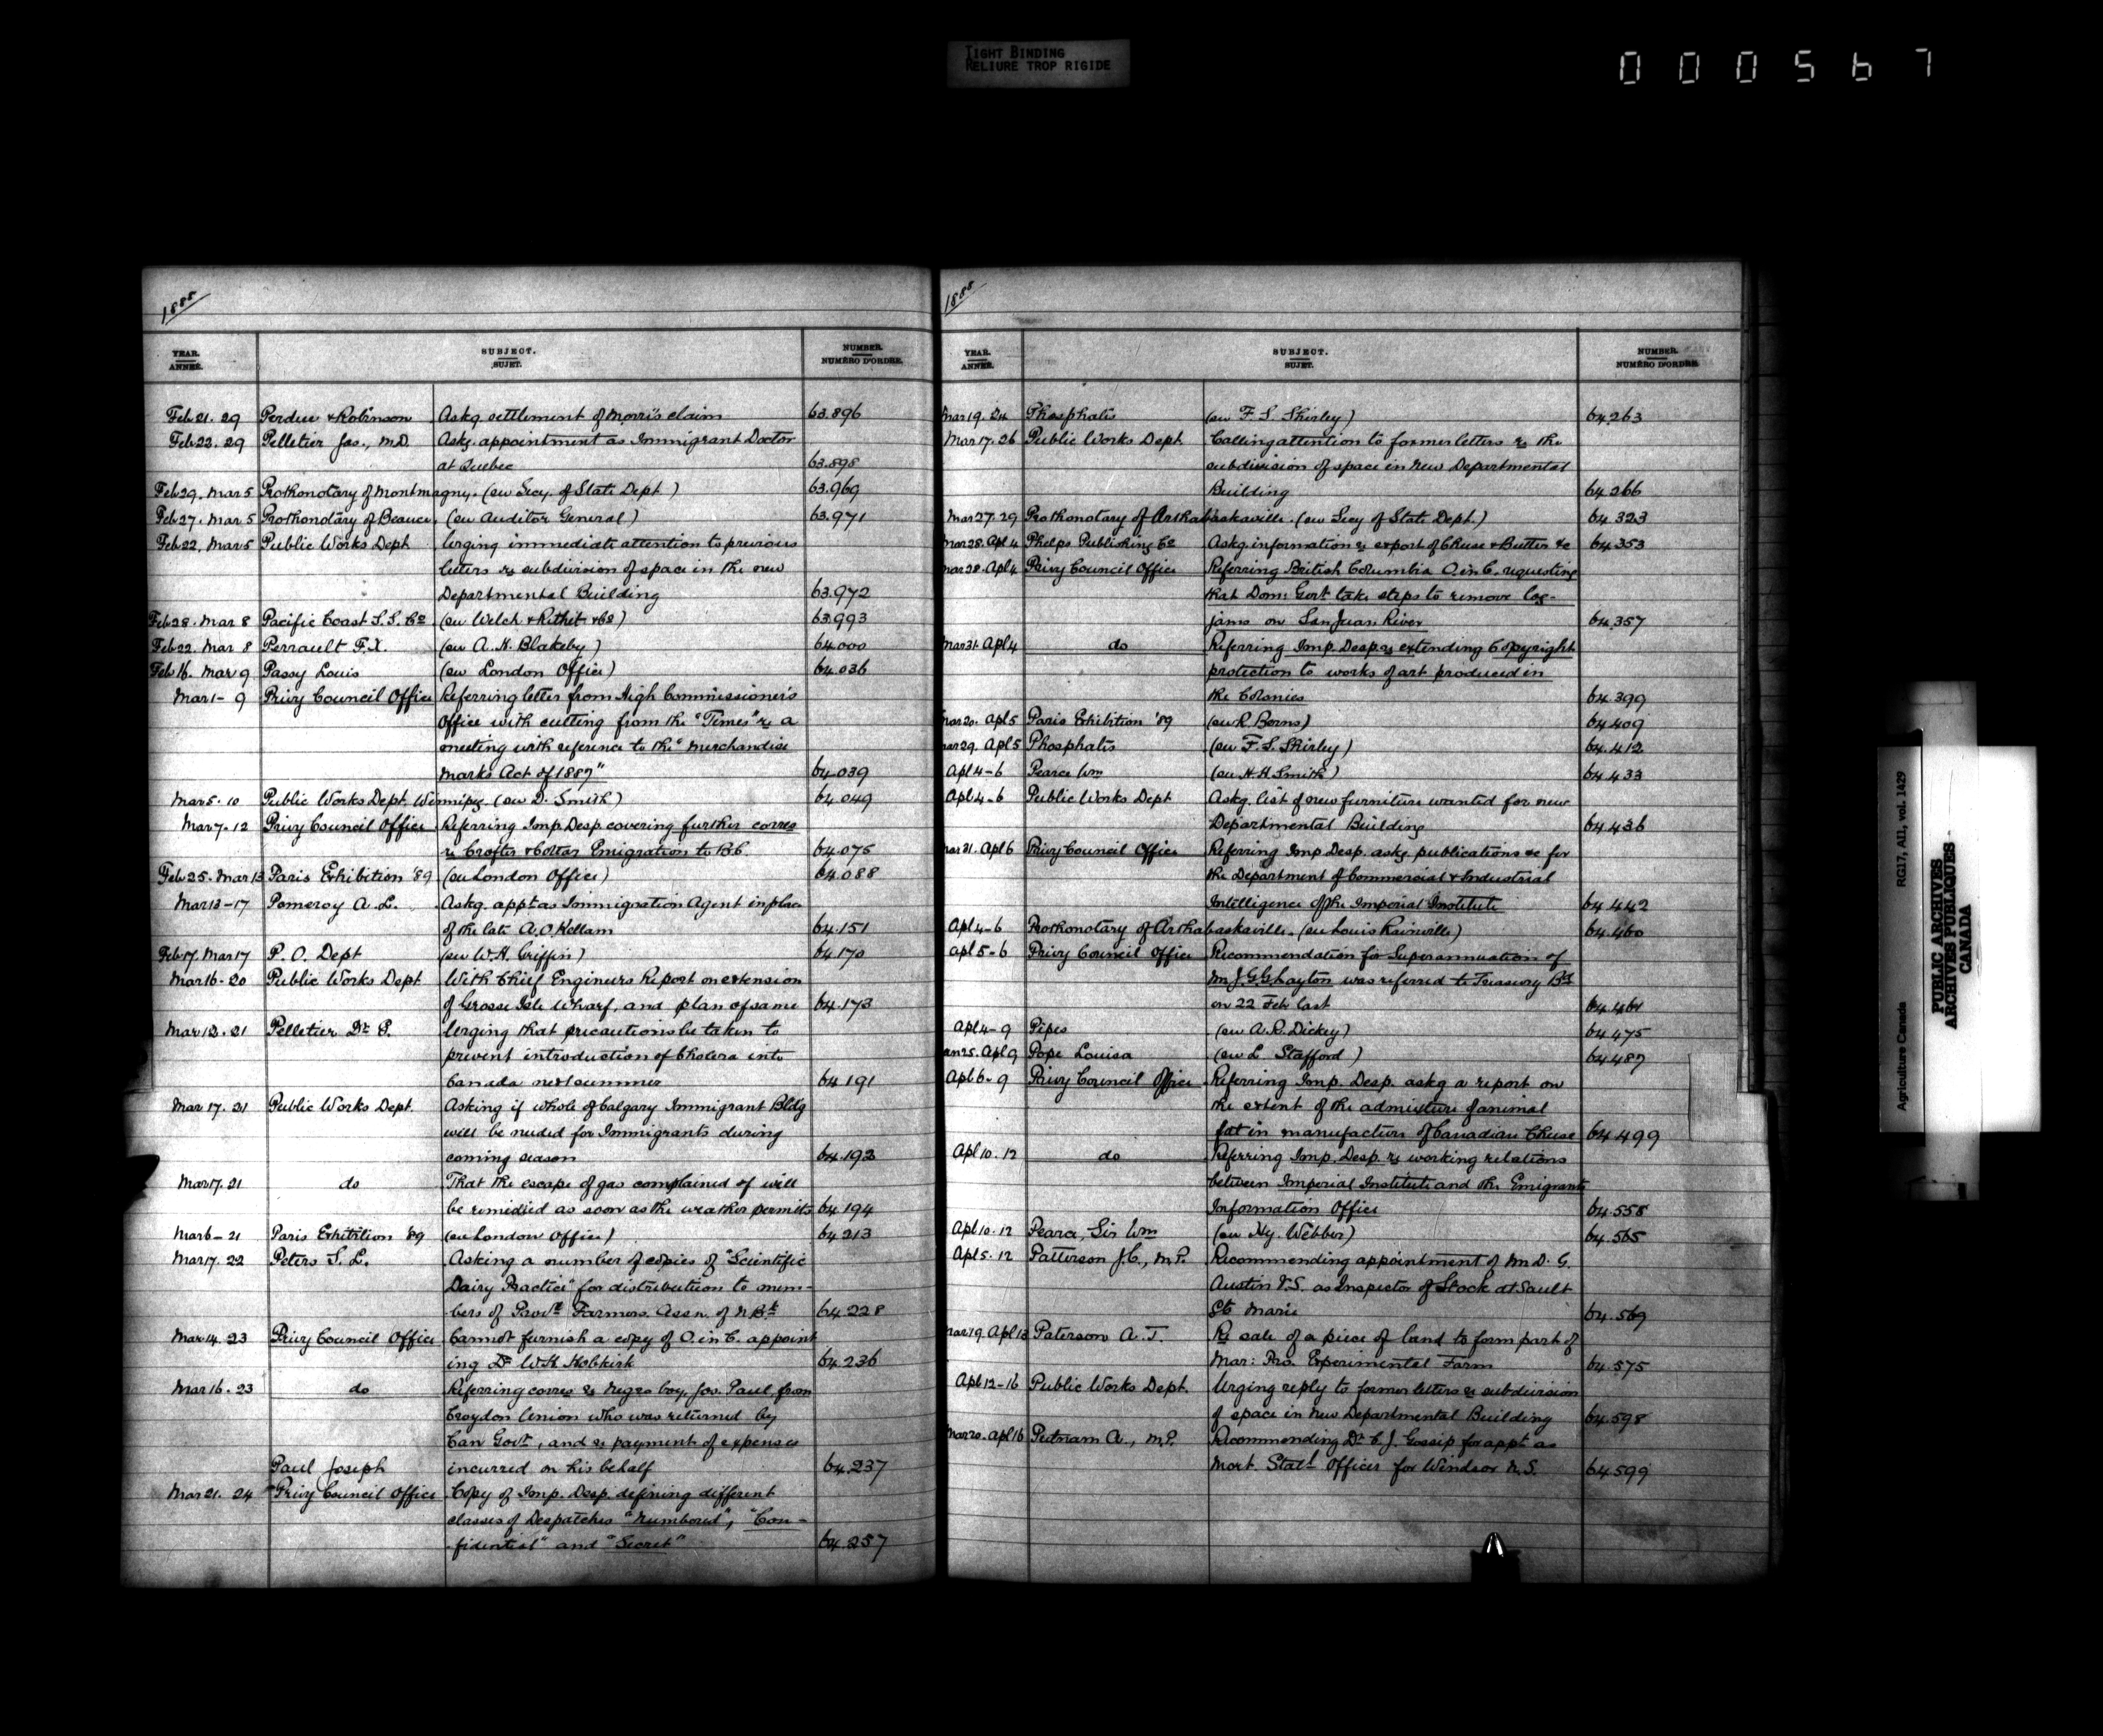 TIGHT BINDING
RELIURE TROP RIGIDE
000567
1888
YEAR. ANNÉE. SUBJECT. SUJET. NUMBER. NUMÉRO D'ORDRE.
Feb 21. 29 Perdue & Robinson Askg. settlement of Morris claim 63.896
Feb 22. 29 Pelletier Jas., M.D. Askg. appointment as Immigrant Doctor
at Quebec 63.898
Feb 29. Mar 5 Prothonotary of Montmagny. (su Secy. of State Dept.) 63.969
Feb 27. Mar 5 Prothonotary of Beauce (su Auditor General) 63.971
Feb 22. Mar 5 Public Works Dept Urging immediate attention to previous
letters re subdivision of space in the new
Departmental Building 63.972
Feb 28. Mar 8 Pacific Coast S.S. Co (su Welch & Rithet & Co) 63.993
Feb 22. Mar 8 Perrault F.X. (su A.H. Blakeby) 64.000
Feb 16. Mar 9 Passy Louis (su London Office) 64.036
Mar 1 - 9 Privy Council Office Referring letter from High Commissioner's
Office with cutting from the "Times" re a
meeting with reference to the "Merchandise
Marks Act of 1887" 64.039
Mar 5. 10 Public Works Dept. Winnipeg (su D. Smith) 64.049
Mar 7. 12 Privy Council Office Referring Imp. Desp. covering further corres
re Crofter & Cottar Emigration to B.C. 64.075
Feb 25. Mar 13 Paris Exhibition '89 (su London Office) 64.088
Mar 13-17 Pomeroy A.L. Askg. appt. as Immigration Agent in place
of the late A.O. Kellam 64.151
Feb 17. Mar 17 P.O. Dept (su W.H. Griffin) 64.170
Mar 16-20 Public Works Dept With Chief Engineers Report on extension
of Grosse Isle Wharf, and plan of same 64.173
Mar 12. 21 Pelletier Dr. P. Urging that precautions be taken to
prevent introduction of Cholera into
Canada next summer 64.191
Mar 17. 21 Public Works Dept. Asking if whole of Calgary Immigrant Bldg
will be needed for Immigrants during
coming season 64.192
Mar 17. 21 do That the escape of gas complained of will
be remedied as soon as the weather permits 64.194
Mar 6-21 Paris Exhibition '89 (su London Office) 64.213
Mar 17. 22 Peters S.L. Asking a number of copies of "Scientific
Dairy Practice" for distribution to mem-
bers of Provl. Farmers. Assn. of N.Bk 64.228
Mar 14. 23 Privy Council Office Cannot furnish a copy of O. in C. appoint
ing Dr W.H. Hobkirk 64.236
Mar 16. 23 do Referring corres re Negro boy, Jos. Paul, from
Croydon Union who was returned by
Can Govt., and re payment of expenses
Paul Joseph incurred on his behalf 64.237
Mar 21. 24 Privy Council Office Copy of Imp. Desp. defining different
classes of Despatches "Numbered", "Con-
fidential" and "Secret" 64.257
1888
YEAR. ANNÉE. SUBJECT. SUJET. NUMBER. NUMÉRO D'ORDRE.
Mar 19. 24 Phosphates (su F.S. Shirley) 64.263
Mar 17. 26 Public Works Dept. Calling attention to former letters re the
subdivision of space in New Departmental
Building 64.266
Mar 27. 29 Prothonotary of Arthabaskaville. (su Secy of State Dept.) 64.323
Mar 28. Apl 4 Phelps Publishing Co Askg. information re export of Cheese & Butter &c 64.353
Mar 28. Apl 4 Privy Council Office Referring British Columbia O. in C. requesting
that Dom: Govt. take steps to remove log-
jams on San Juan River 64.357
Mar 31. Apl 4 do Referring Imp. Desp. re extending Copyright
protection to works of art produced in
the Colonies 64.399
Mar 20. Apl 5 Paris Exhibition '89 (su R. Borns) 64.409
Mar 29. Apl 5 Phosphates (su F.S. Shirley) 64.412
Apl 4-6 Pearce Wm (su H.H. Smith) 64.433
Apl 4-6 Public Works Dept Askg. list of new furniture wanted for new
Departmental Building 64.436
Mar 21. Apl 6 Privy Council Office Referring Imp. Desp. askg. publications &c for
the Department of Commercial & Industrial
Intelligence of the Imperial Institute 64.442
Apl 4-6 Prothonotary of Arthabaskaville. (su Louis Rainville) 64.460
Apl 5-6 Privy Council Office Recommendation for Superannuation of
Mr J.G. Layton was referred to Treasury Bd
on 22 Feb last 64.461
Apl 4-9 Pipes (su A.R. Dickey) 64.475
Jan 25. Apl 9 Pope Louisa (su L. Stafford) 64.487
Apl 6. 9 Privy Council Office Referring Imp. Desp. askg a report on
the extent of the admixture of animal
fat in manufacture of Canadian Cheese 64.499
Apl 10. 12 do Referring Imp. Desp. re working relations
between Imperial Institute and the Emigrants
Information Office 64.558
Apl 10. 12 Pearce, Sir Wm (su Hy. Webber) 64.565
Apl 5. 12 Patterson J.C., M.P. Recommending appointment of Mr D.G.
Austin V.S. as Inspector of Stock at Sault
Ste Marie 64.569
Mar 19. Apl 13 Paterson A.T. Re sale of a piece of land to form part of
Mar: Pro. Experimental Farm 64.575
Apl 12-16 Public Works Dept. Urging reply to former letters re subdivision
of space in New Departmental Building 64.598
Mar 20. Apl 16 Putnam A., M.P. Recommending Dr C.J. Gossip for appt. as
Mort. Statl Officer for Windsor N.S. 64.599
Agriculture Canada RG17, AII, vol. 1429
PUBLIC ARCHIVES
ARCHIVES PUBLIQUES
CANADA